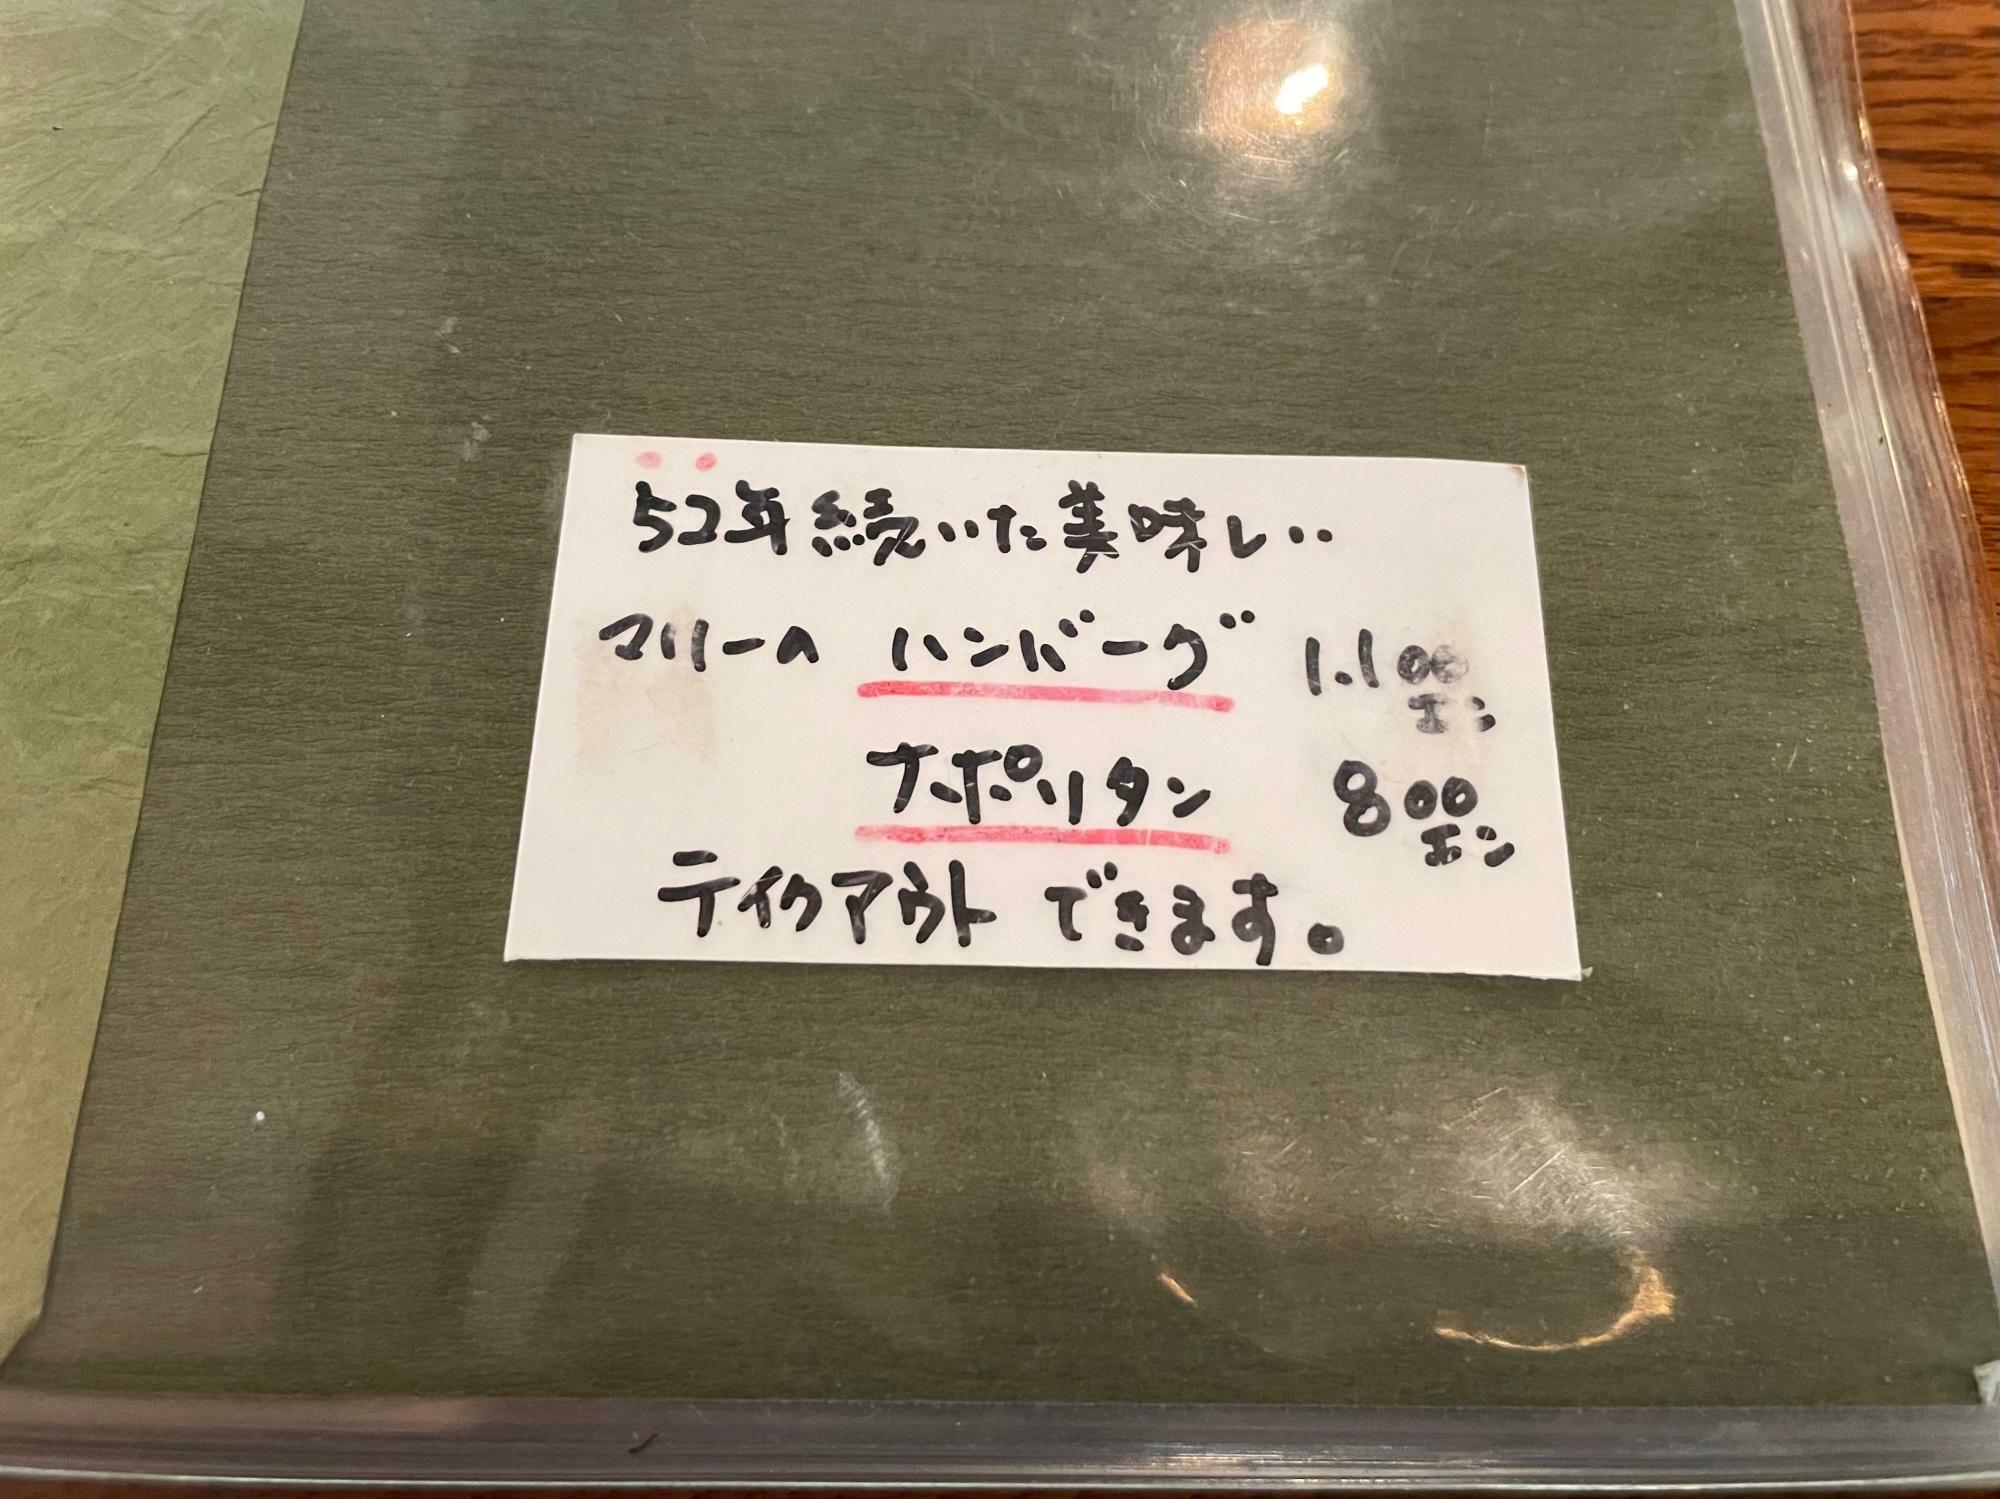 52年続いた美味しい
マリーの ハンバーグ 1.100エン
ナポリタン 800エン
テイクアウト できます。